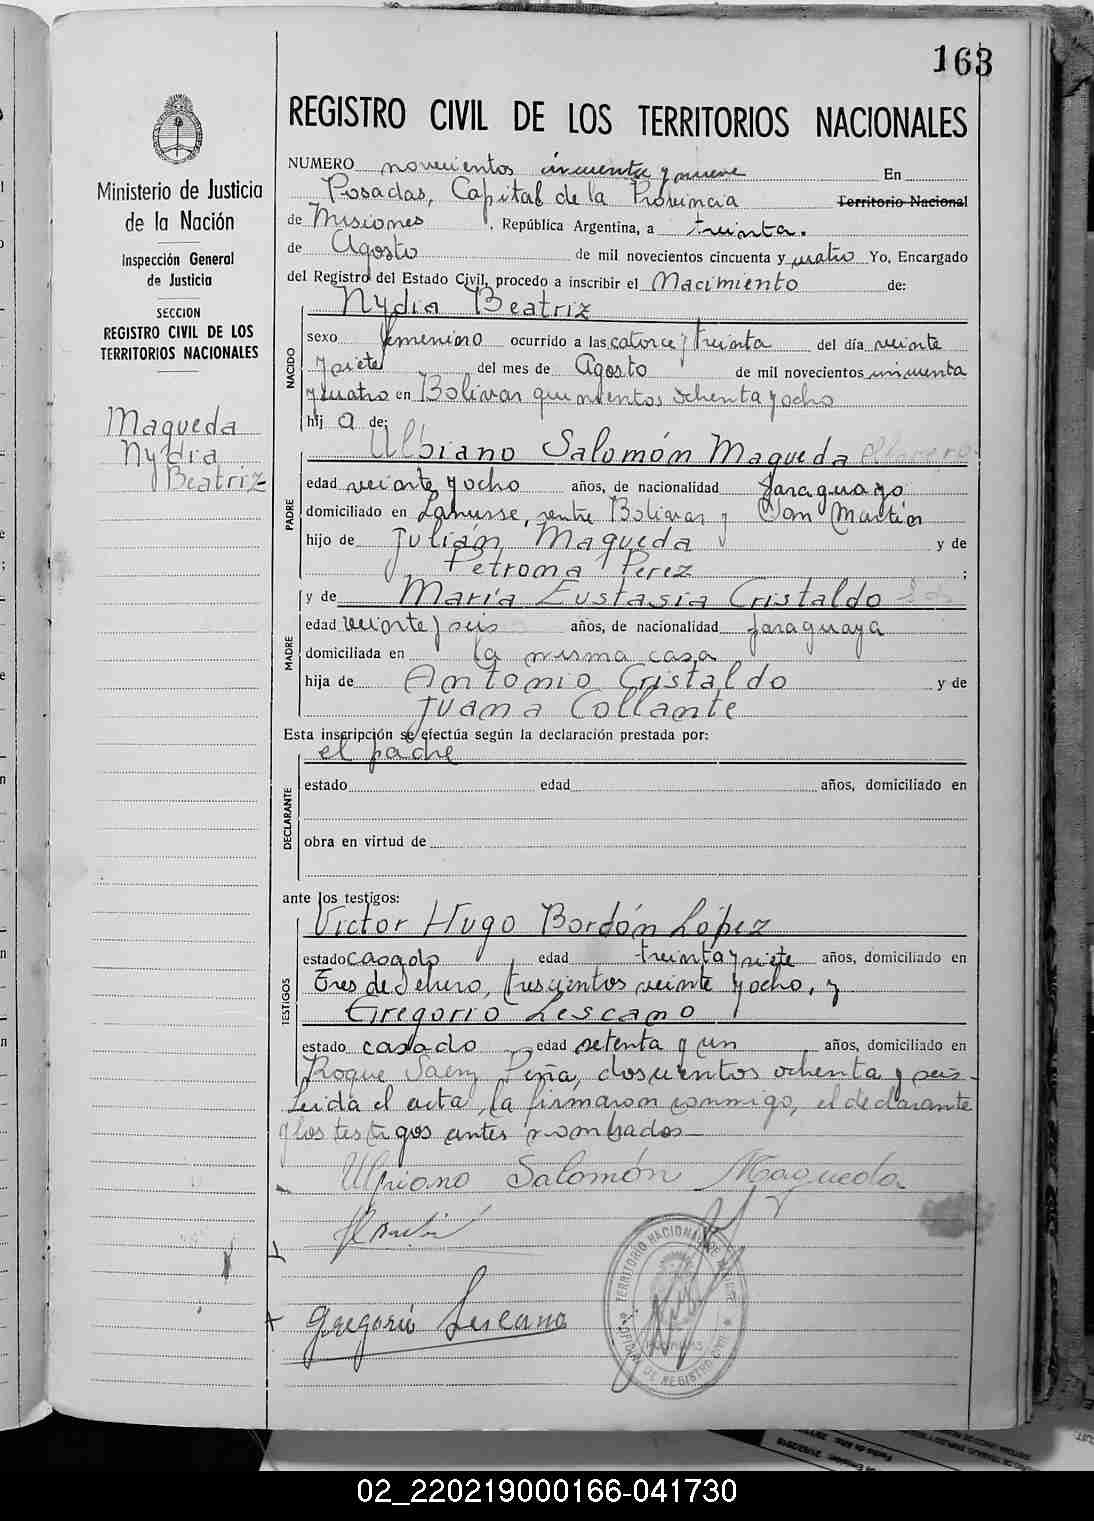 163
REGISTRO CIVIL DE LOS TERRITORIOS NACIONALES
Ministerio de Justicia
de la Nación
Inspección General
de Justicia
SECCION
REGISTRO CIVIL DE LOS
TERRITORIOS NACIONALES
Maqueda
Nydia
Beatriz
NUMERO novecientos cincuenta y nueve En
Posadas, Capital de la Provincia Territorio Nacional
de Misiones, República Argentina, a treinta.
de Agosto de mil novecientos cincuenta y cuatro Yo, Encargado
del Registro del Estado Civil, procedo a inscribir el Nacimiento de:
Nydia Beatriz
NACIDO
sexo femenino ocurrido a las catorce y treinta del día veinte
y siete del mes de Agosto de mil novecientos cincuenta
y cuatro en Bolivar quinientos ochenta y ocho
hij a de:
Ulpiano Salomón Maqueda
PADRE
edad veinte y ocho años, de nacionalidad paraguayo
domiciliado en Lanusse, entre Bolivar y San Martín
hijo de Julián Maqueda y de
Petrona Perez ;
y de María Eustasia Cristaldo
MADRE
edad veinte y seis años, de nacionalidad paraguaya
domiciliada en la misma casa
hija de Antonio Cristaldo y de
Juana Collante
Esta inscripción se efectúa según la declaración prestada por:
el padre
DECLARANTE
estado edad años, domiciliado en
obra en virtud de
ante los testigos:
Victor Hugo Bordón López
TESTIGOS
estado casado edad treinta y siete años, domiciliado en
Tres de Febrero, trescientos veinte y ocho, y
Gregorio Lescano
estado casado edad setenta y un años, domiciliado en
Roque Saenz Peña, doscientos ochenta y seis-
Leida el acta, la firmaron conmigo, el declarante
y los testigos antes nombrados-
Ulpiano Salomón Maqueda
Gregorio Lescano
TERRITORIO NACIONAL DE MISIONES
OFICINA DE REGISTRO CIVIL
02_220219000166-041730